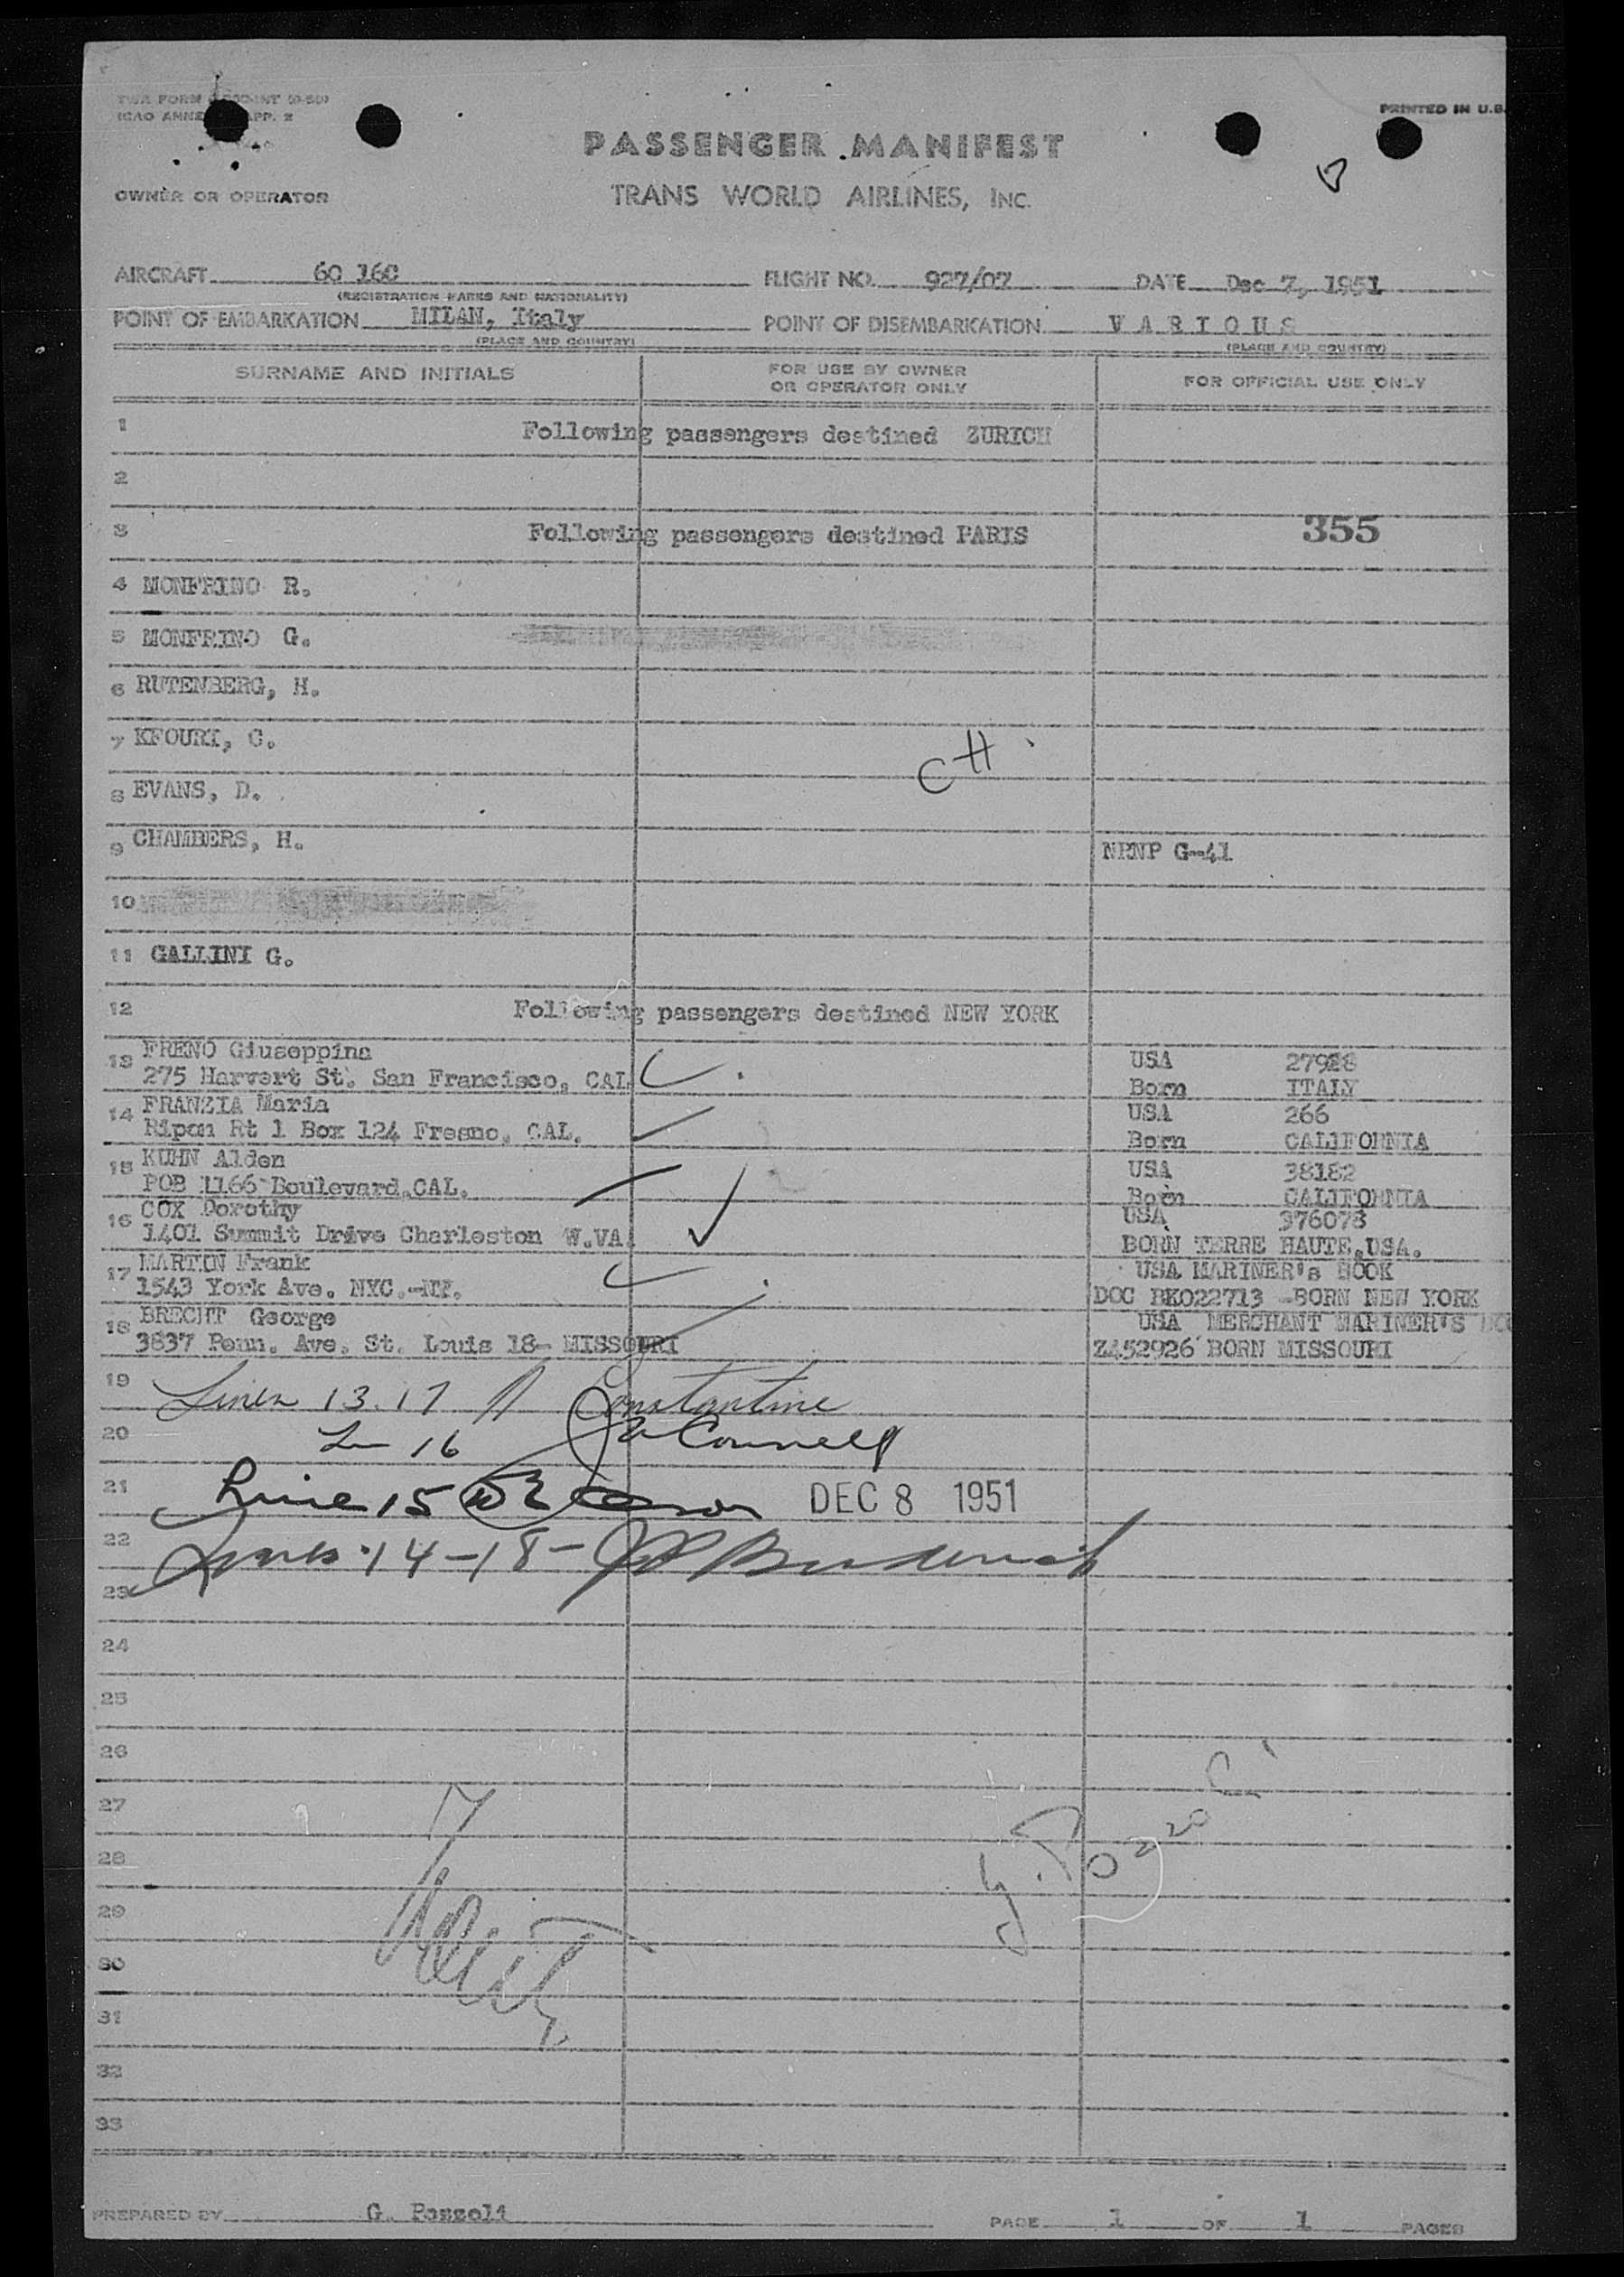 PRINTED IN U.S.
PASSENGER MANIFEST
OWNER OR OPERATOR
TRANS WORLD AIRLINES, INC.
AIRCRAFT 60 160 FLIGHT NO. 927/07 DATE Dec 7, 1951
(REGISTRATION MARKS AND NATIONALITY)
POINT OF EMBARKATION MILAN, Italy POINT OF DISEMBARKATION V A R I O U S
(PLACE AND COUNTRY) (PLACE AND COUNTRY)
SURNAME AND INITIALS FOR USE BY OWNER OR OPERATOR ONLY FOR OFFICIAL USE ONLY
1 Following passengers destined ZURICH
2
3 Following passengers destined PARIS 355
4 MONFRINO R.
5 MONFRINO G.
6 RUTENBERG, H.
7 KFOURI, C.
CH
8 EVANS, D.
9 CHAMBERS, H. NRNP G-41
10
11 GALLINI G.
12 Following passengers destined NEW YORK
13 FRENO Giuseppina USA 27928
275 Harvert St. San Francisco, CAL Born ITALY
14 FRANZIA Maria USA 266
Ripon Rt 1 Box 124 Fresno, CAL. Born CALIFORNIA
15 KUHN Alden USA 38182
POB 1166 Boulevard,CAL. Born CALIFORNIA
16 COX Dorothy USA 376078
1401 Summit Drive Charleston W.VA. BORN TERRE HAUTE,USA.
17 MARTIN Frank USA MARINER's BOOK
1543 York Ave. NYC.-NY. DOC BK022713 -BORN NEW YORK
18 BRECHT George USA MERCHANT MARINER'S DOC
3837 Penn. Ave. St. Louis 18- MISSOURI Z452926 BORN MISSOURI
19 Lines 13.17 Constantine
20 16 Connell
21 Line 15 DEC 8 1951
22 Lines 14-18-
23
24
25
26
27
28
29
30
31
32
33
PREPARED BY G. Pozzoli PAGE 1 OF 1 PAGES